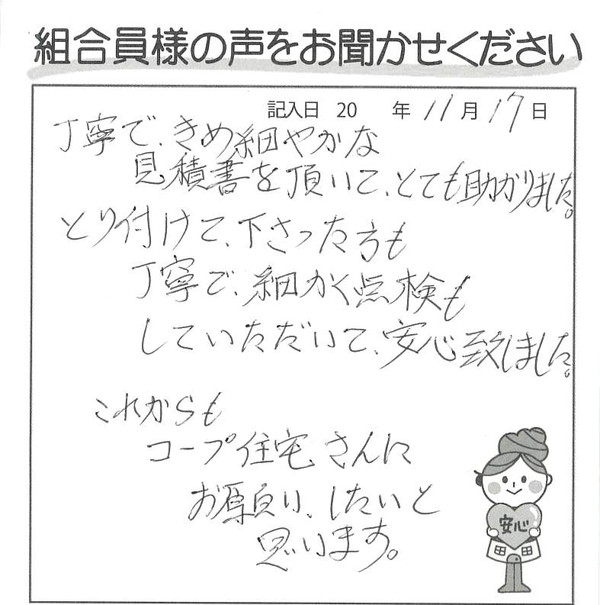 組合員様の声をお聞かせください
記入日 20 年 11月 17日
丁寧で、きめ細やかな
見積書を頂いて、とても助かりました。
とり付けて、下さった方も
丁寧で、細かく点検も
していただいて、安心致しました。
これからも
コープ住宅さんに
お願い、したいと
思います。
安心